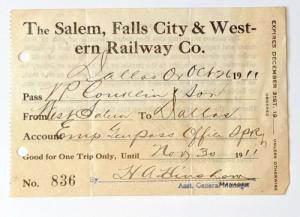 The Salem, Falls City & West-
ern Railway Co.
Dallas Or Oct 26 1911
Pass W P Conklin & Son
From West Salem To Dallas
Account Emp Gen pass Office
Good for One Trip Only, Until Nov 30 1911
No. 836 By H A Hinshaw
Asst. General Manager
EXPIRES DECEMBER 31ST, 19
UNLESS OTHERWISE
ORDERED